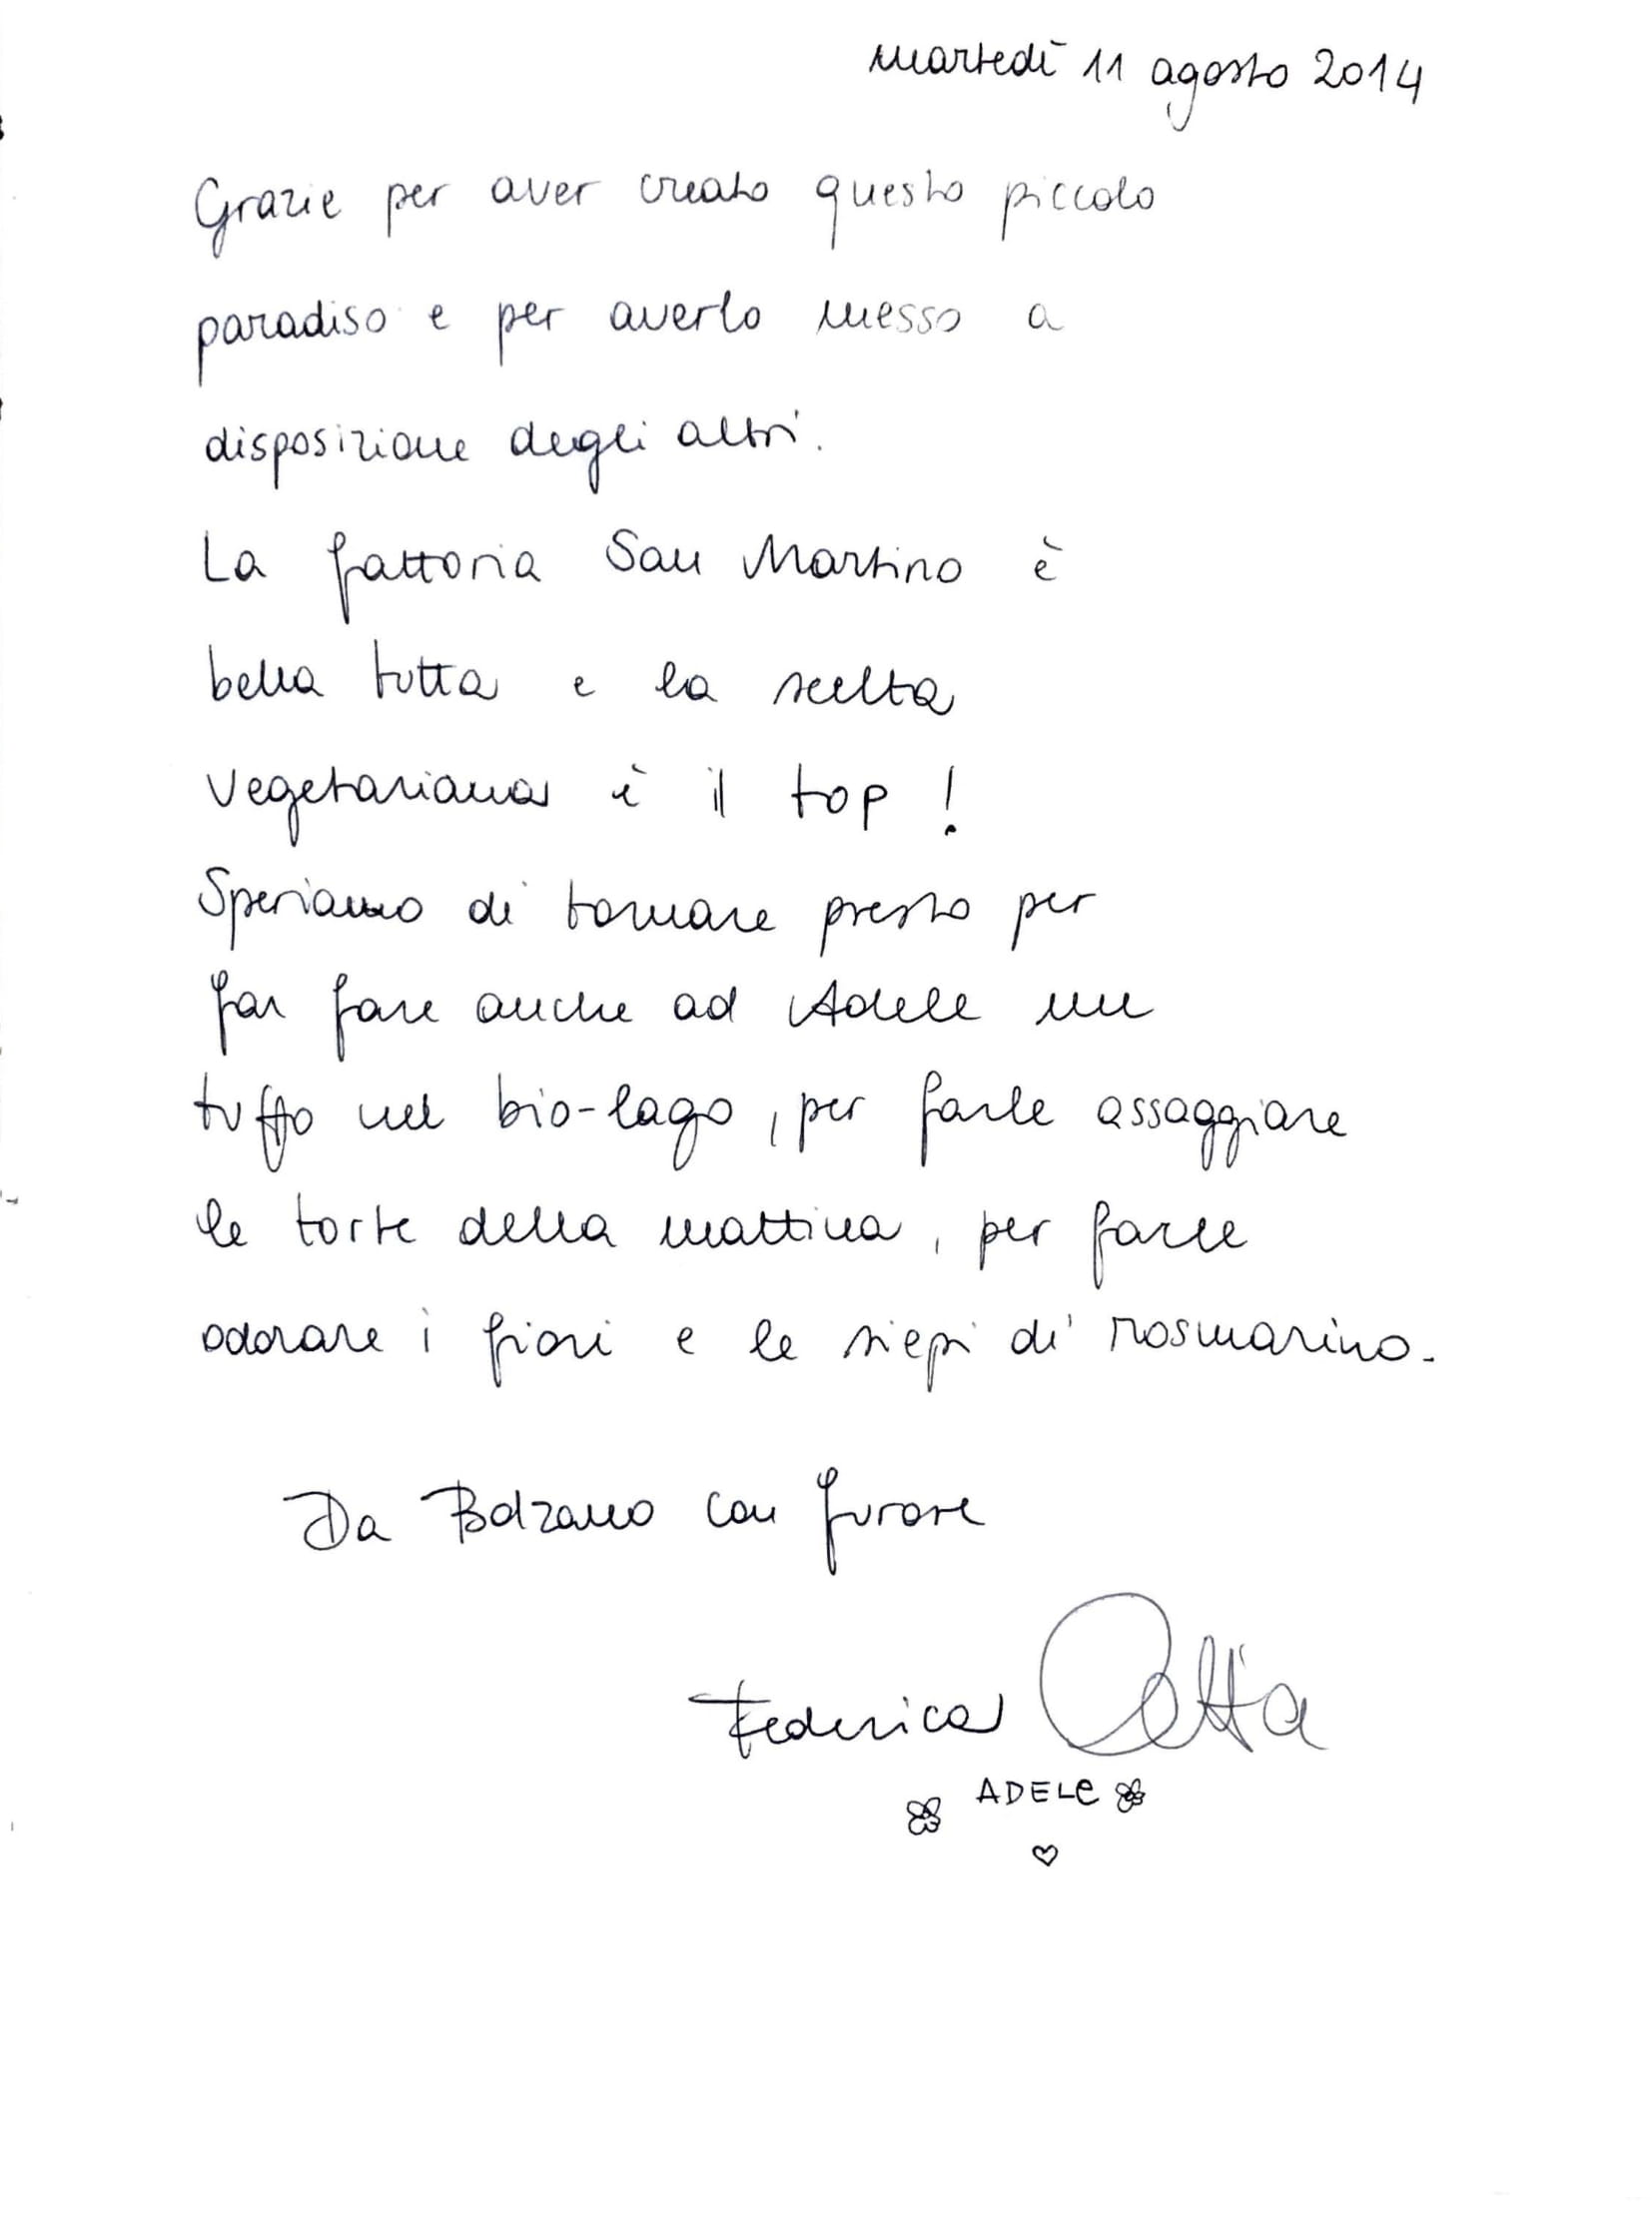 martedì 11 agosto 2014
Grazie per aver creato questo piccolo
paradiso e per averlo messo a
disposizione degli altri.
La fattoria San Martino è
bella tutta e la scelta
vegetariana è il top !
Speriamo di tornare presto per
far fare anche ad Adele un
tuffo nel bio-lago, per farle assaggiare
le torte della mattina, per farle
odorare i fiori e le siepi di rosmarino.
Da Bolzano con furore
Federica
ADELE